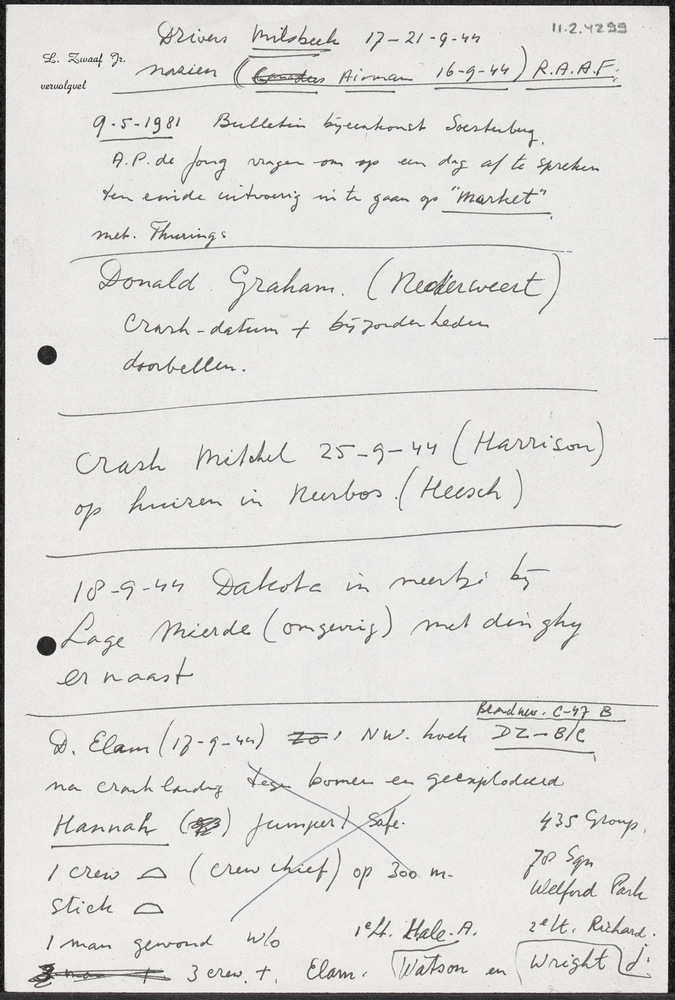 11.2.4299
Drivers Milsbeek 17-21-9-44
L. Zwaaf Jr.
nazien (Airman 16-9-44) R.A.A.F.
vervolgvel
9-5-1981 Bulletin bijeenkomst Soesterberg.
A.P. de Jong vragen om op een dag af te spreken
ten einde uitvoerig in te gaan op "Market"
met. Thurings
Donald Graham. (Nederweert)
Crash-datum + bijzonderheden
doorbellen.
Crash Mitchel 25-9-44 (Harrison)
op huizen in Nursbos. (Heesch)
18-9-44 Dakota in meertje bij
Lage Mierde (omgeving) met dinghy
ernaast
Branduw. C-47 B
D. Elam (17-9-44) ZO, NW. hoek DZ-B/C
na crashlanding tegen bomen en geexplodeerd
Hannah () jumped safe.
435 Group,
1 crew (crew chief) op 300 m.
78 Sqn
stick
Welford Park
1 man gewond w/o 1e Lt. Hale. A. 2e Lt. Richard.
3 man + 3 crew. +. Elam. Watson en Wright J.